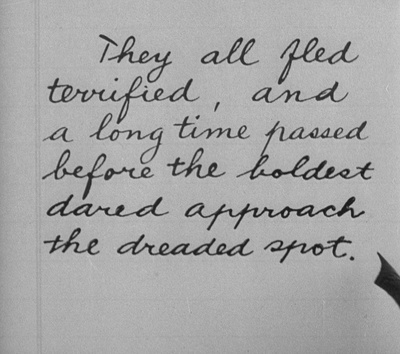 They all fled
terrified, and
a long time passed
before the boldest
dared approach
the dreaded spot.